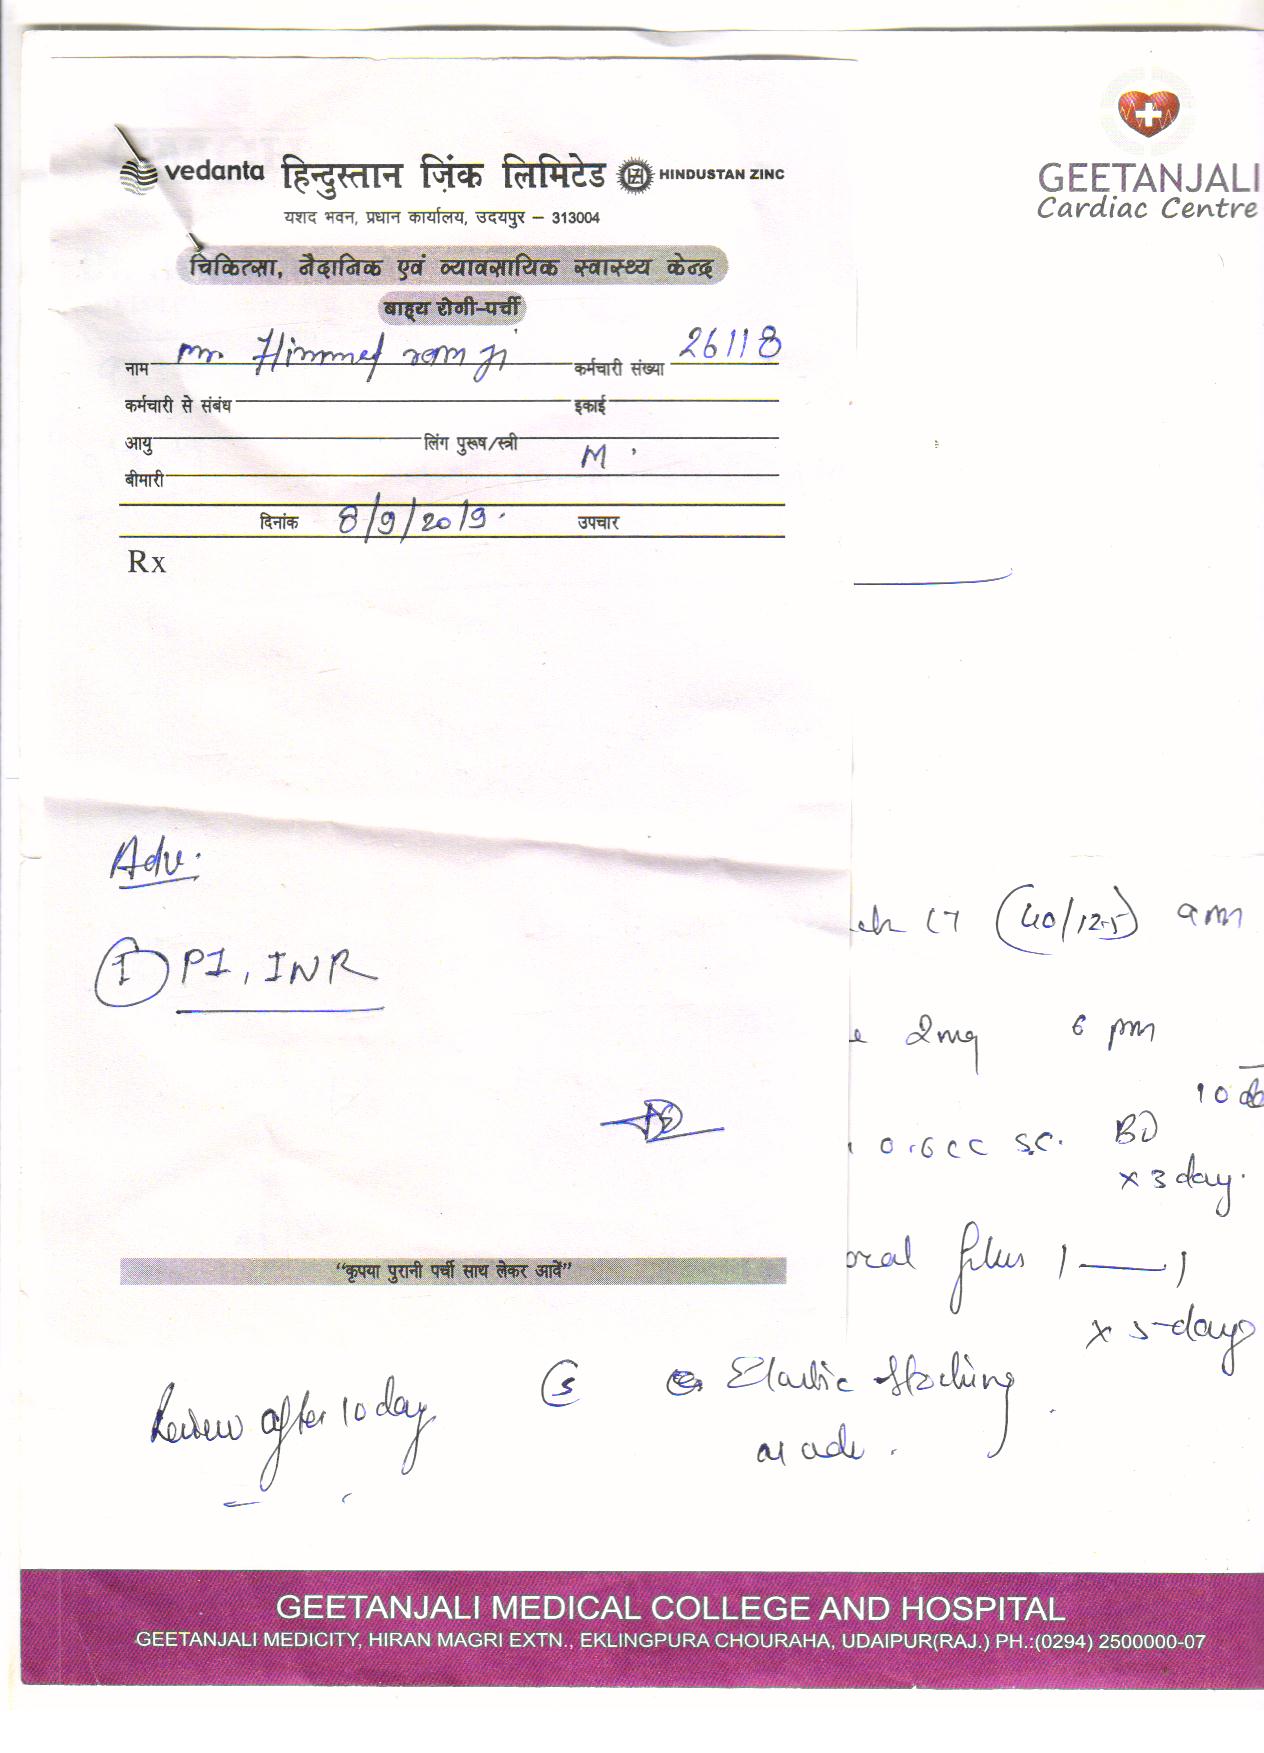 vedanta हिन्दुस्तान ज़िंक लिमिटेड HINDUSTAN ZINC
यशद भवन, प्रधान कार्यालय, उदयपुर – 313004
चिकित्सा, नैदानिक एवं व्यावसायिक स्वास्थ्य केन्द्र
बाह्य रोगी-पर्ची
नाम mr. Himmet ram ji कर्मचारी संख्या 26118
कर्मचारी से संबंध इकाई
आयु लिंग पुरूष/स्त्री M
बीमारी
दिनांक 8/9/2019 उपचार
Rx
Adv.
① PI, INR
"कृपया पुरानी पर्ची साथ लेकर आवें"
GEETANJALI
Cardiac Centre
(40/12.5) 9 am
2mg 6 pm
0.6 cc s.c. BD
x 3 day.
oral plus 1 — 1
x 5 days
Review after 10 day
Elastic stocking
GEETANJALI MEDICAL COLLEGE AND HOSPITAL
GEETANJALI MEDICITY, HIRAN MAGRI EXTN., EKLINGPURA CHOURAHA, UDAIPUR(RAJ.) PH.:(0294) 2500000-07